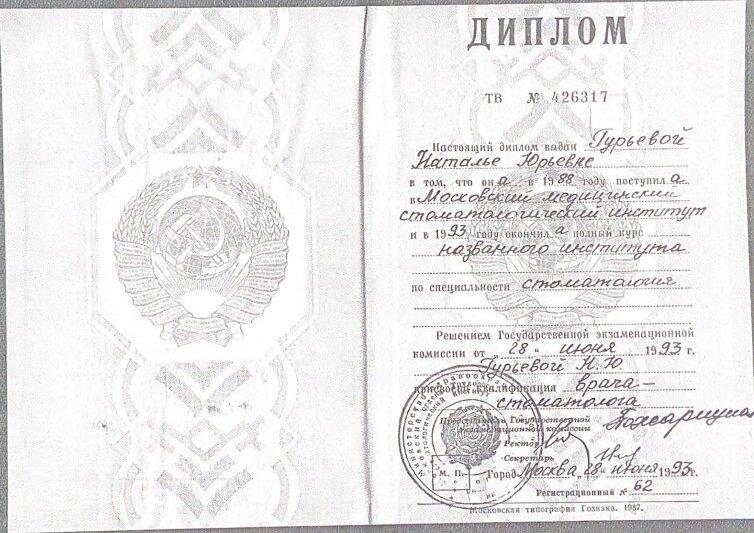 ДИПЛОМ
ТВ № 426317
Настоящий диплом выдан Гурьевой
Наталье Юрьевне
в том, что она в 1988 году поступила
в Московский медицинский
стоматологический институт
и в 1993 году окончила полный курс
названного института
по специальности стоматология
Решением Государственной экзаменационной
комиссии от „28“ июня 1993 г.
Гурьевой Н.Ю.
присвоена квалификация врача-
стоматолога
Председатель Государственной
экзаменационной комиссии
Ректор
Секретарь
М. П. Город Москва, 28 июня 1993 г.
Регистрационный № 62
Московская типография Гознака. 1987.